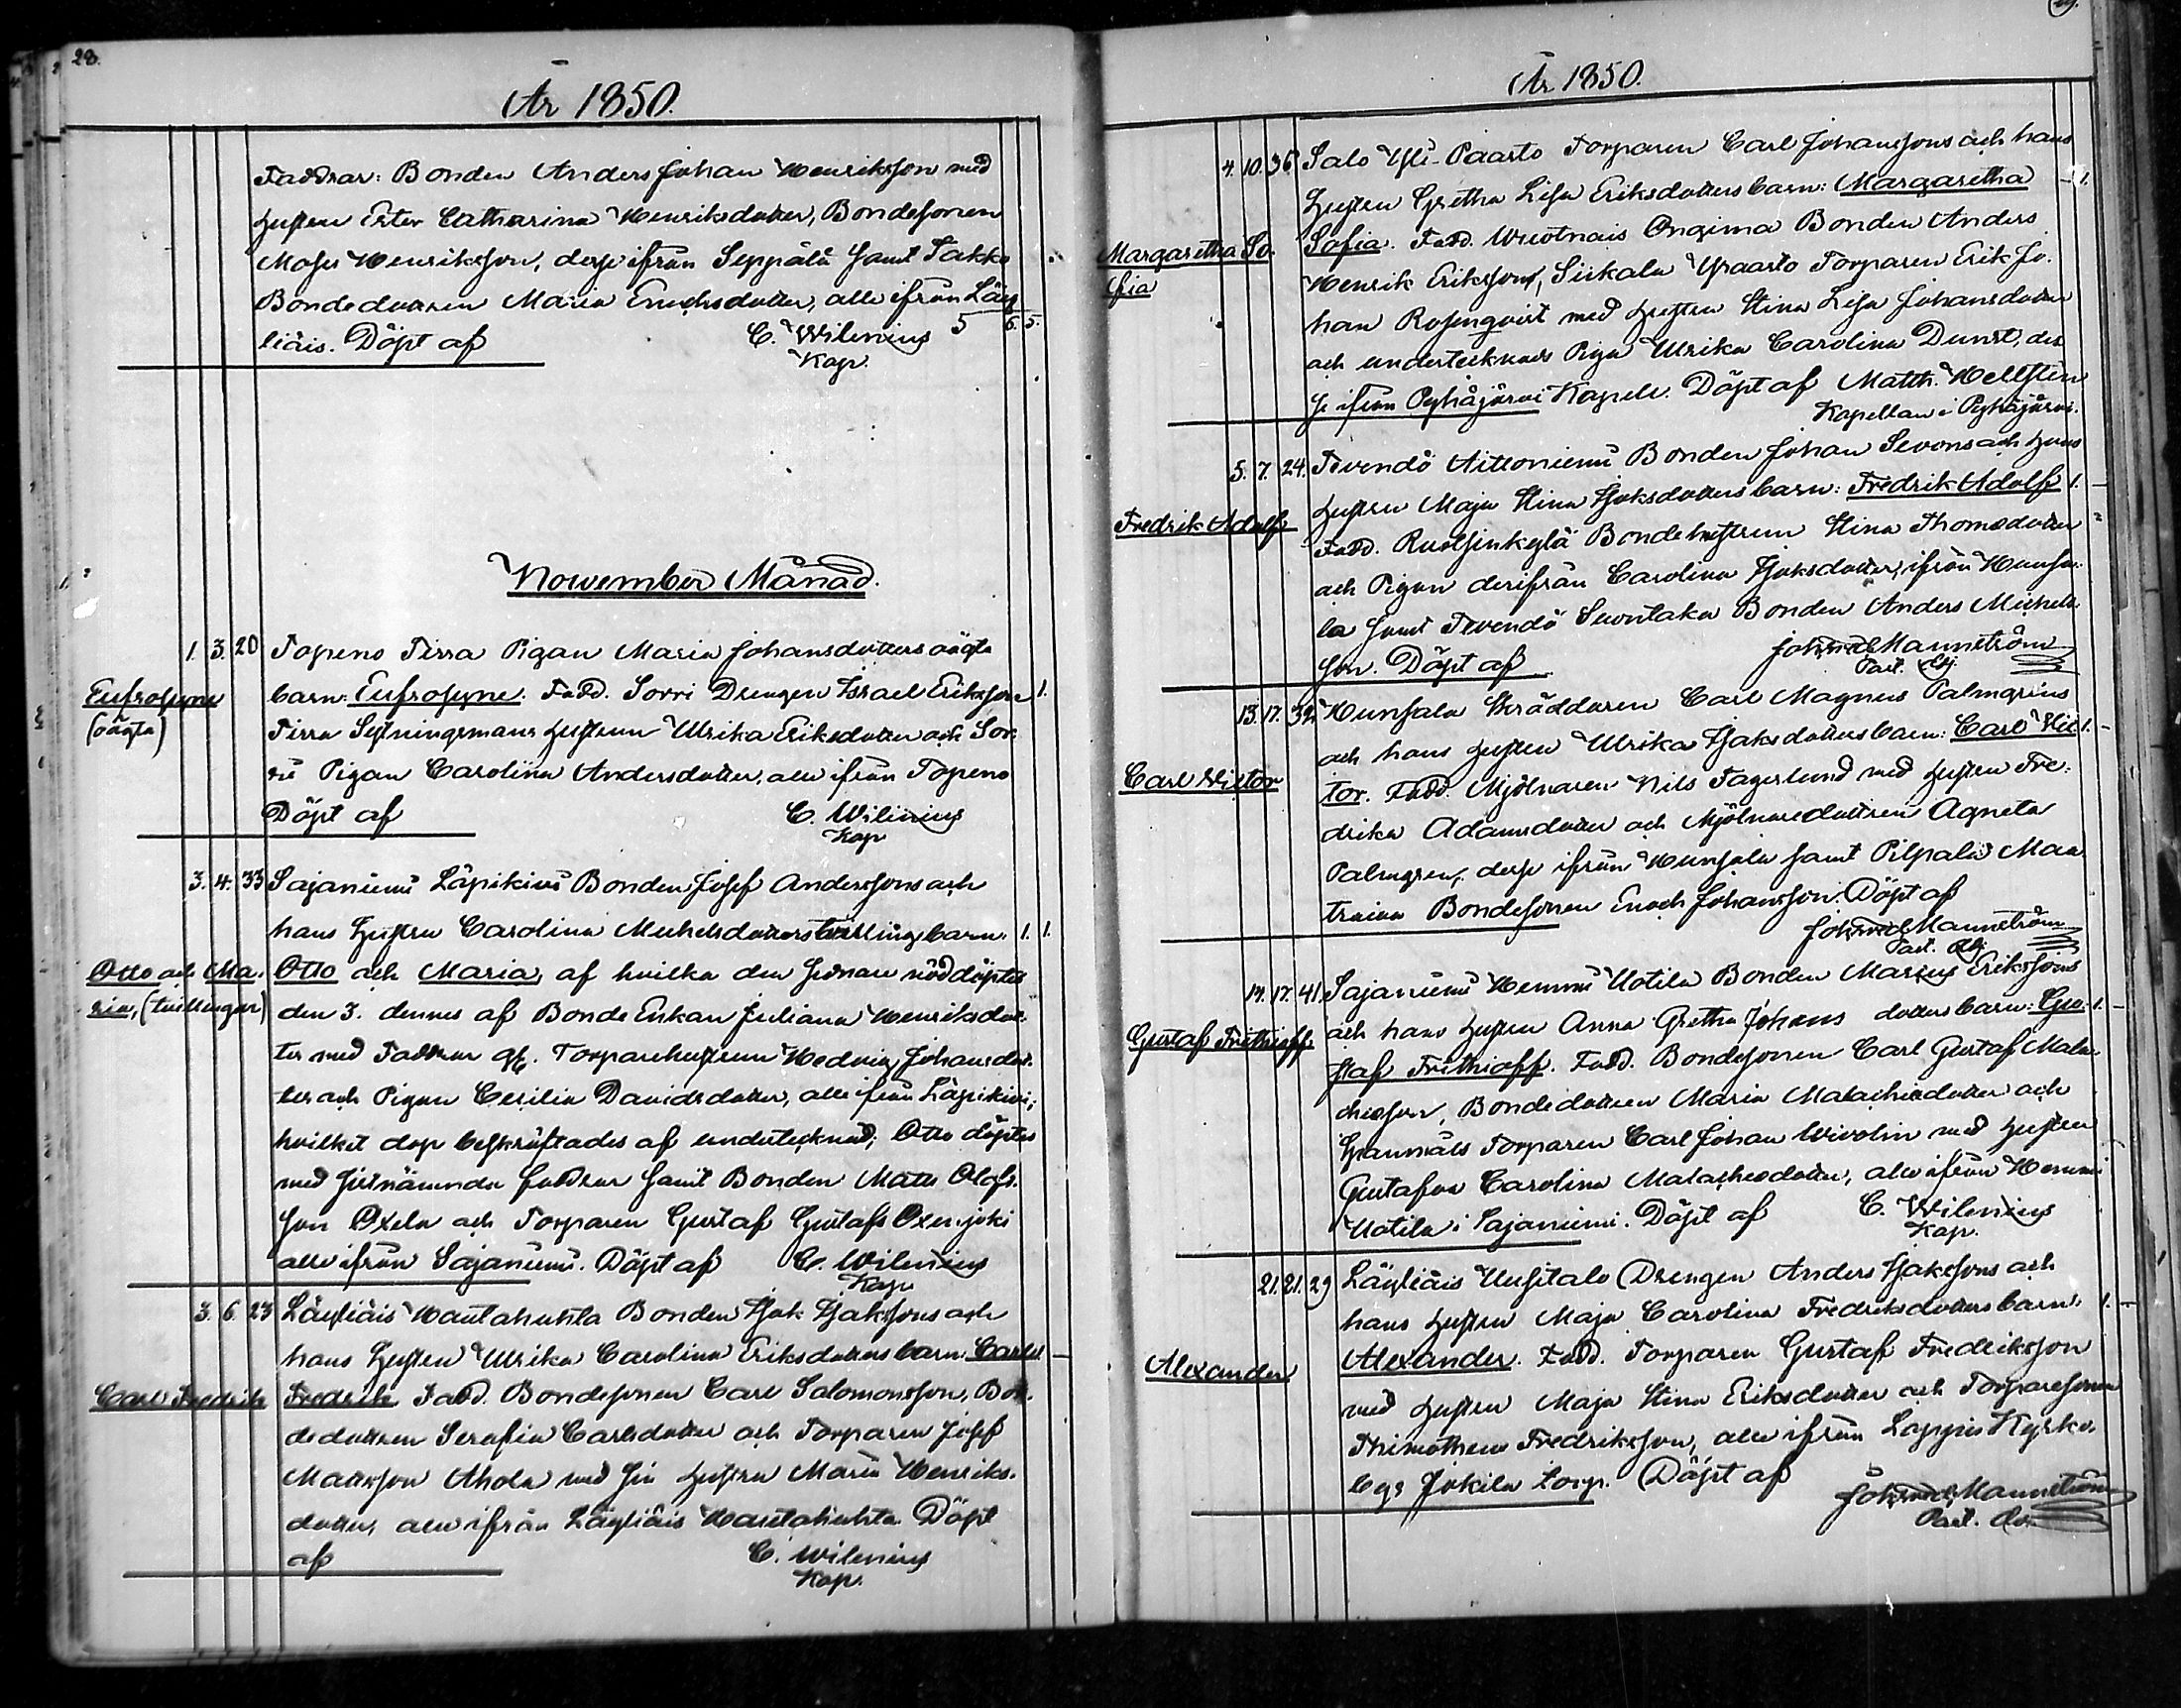 28.
År 1850.
Faddrar: Bonden Anders Johan Henriksson med
hustru Ester Catharina Henriksdotter, Bondesonen
Moses Henriksson, desse ifrån Seppälä samt Takko
Bondedottren Maria Enochsdotter, alle ifrån Läy
liäis. Döpt af C. Wilenius 5 6. 5.
Kap.
November Månad.
1. 3. 20 Topeno Pirra Pigan Maria Johansdotters oägta
Eufrosyne barn: Eufrosyne. Fadd. Sorri Drengen Israel Eriksson 1.
(oägta) Pirra Sytningsmans hustrun Ulrika Eriksdotter och Sor:
ri Pigan Carolina Andersdotter, alle ifrån Topeno
Döpt af C. Wilenius
Kap
3. 4. 33 Sajaniemi Läpikivi Bonden Josef Anderssons och
hans hustru Carolina Michelsdotters tvillingbarn: 1. 1.
Otto och Ma: Otto och Maria, af hvilka den senare nöddöptes
ria, (tvillingar) den 3. dennes af Bonde Enkan Juliana Henriksdot:
ter med Faddrar Torparehustrun Hedvig Johansdot:
ter och Pigan Cecilia Davidsdotter, alle ifrån Läpikivi;
hvilket dop bekräftades af undertecknad; Otto döptes
med sistnämnda faddrar samt Bonden Matts Olofs:
son Oxela och Torparen Gustaf Gustafs Oxenjoki
alle ifrån Sajaniemi. Döpt af C. Wilenius
Kap
3. 6. 23 Läyliäis Hautahuhta Bonden Isak Isakssons och
hans hustru Ulrika Carolina Eriksdotters barn: Carl 1. —
Carl Fredrik Fredrik Fadd. Bondesonen Carl Salomonsson, Bon:
dedottren Serafia Carlsdotter och Torparen Josef
Matsson Ahola med sin hustru Maria Henriks:
dotter, alle ifrån Läyliäis Hautahuhta Döpt
af C. Wilenius
Kap.
29.
År 1850.
4. 10. 36 Salo Yli-Paasto Torparen Carl Johanssons och hans
hustru Gretha Lisa Eriksdotters barn: Margaretha — 1.
Margaretha So: Sofia. Fadd. Wuotnais Ongima Bonden Anders
fia Henrik Eriksson, Sirkala Ypaasto Torparen Erik Jo:
han Rosenqvist med hustru Stina Lisa Johansdotter
och undertecknads Piga Ulrika Carolina Dunst, des
se ifrån Pyhäjärvi Kapell. Döpt af Matth. Hellsten
Kapellan i Pyhäjärvi.
5. 7. 24. Tevendö Aittoniemi Bonden Johan Sevons och hans
hustru Maja Stina Isaksdotters barn: Fredrik Adolf 1. —
Fredrik Adolf Fadd. Ruolsinkylä Bondehustrun Stina Thomsdotter
och Pigan derifrån Carolina Isaksdotter, ifrån Hunsa:
la samt Tevendö Suontaka Bonden Anders Michels
son. Döpt af Mannström
Past. Adj.
13. 17. 32 Hunsala Skräddaren Carl Magnus Palmgrens
och hans hustru Ulrika Isaksdotters barn: Carl Vic: 1. —
Carl Victor tor. Fadd. Mjölnaren Nils Fagerlund med hustru Fre:
drika Adamsdotter och Mjölnaredottren Agneta
Palmgren, desse ifrån Hunsala samt Pilpala Maa
Bondesonen Enoch Johansson. Döpt af
Mannström
Past. Adj.
14. 17. 41. Sajaniemi Hemmi Uotila Bonden Marcus Erikssons
Gustaf Frithioff och hans hustru Anna Gretha Johans dotters barn: Gu: 1. —
staf Frithioff. Fadd. Bondesonen Carl Gustaf Mala:
chiasson, Bondedottren Maria Malachiedotter och
Torparen Carl Johan Wivolin med hustru
Gustafva Carolina Malachiedotter, alle ifrån Hemmi
Uotila i Sajaniemi. Döpt af C. Wilenius
Kap.
21. 21. 29 Läyliäis Uusitalo Drengen Anders Isakssons och
hans hustru Maja Carolina Fredriksdotters barn: 1. —
Alexander Alexander. Fadd. Torparen Gustaf Fredriksson
med hustru Maja Stina Eriksdotter och Torparesonen
Thimotheus Fredriksson, alle ifrån Loppis Kyrko:
bys Jokila torp. Döpt af Mannström
Past. Adj.